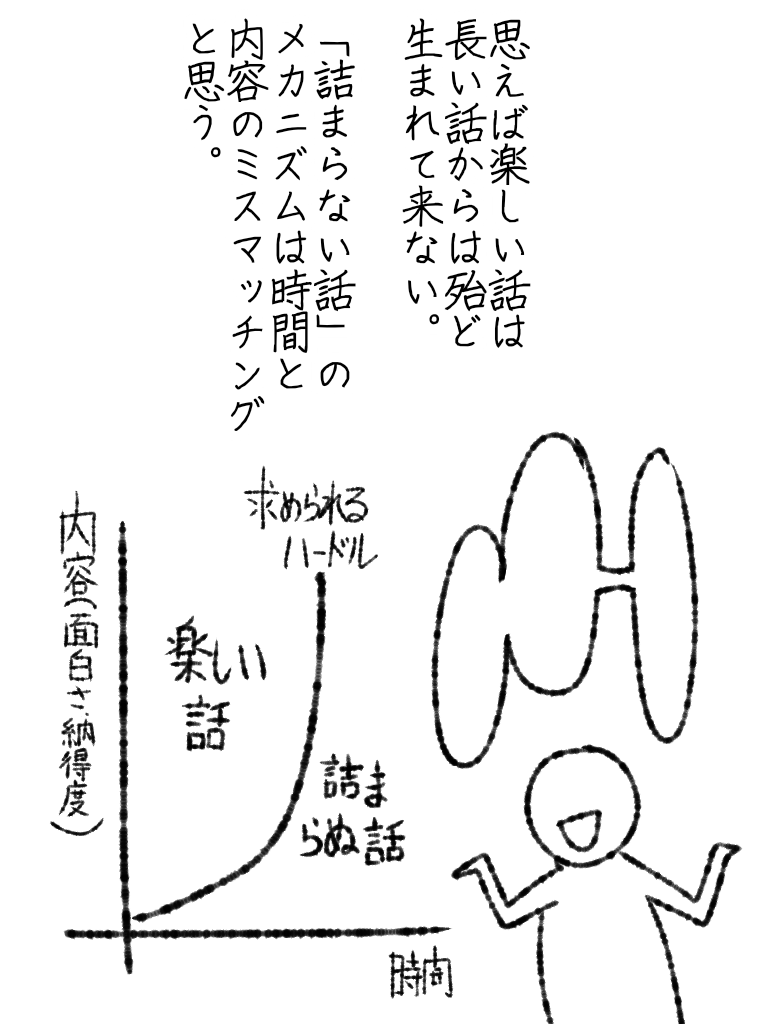 思えば楽しい話は
長い話からは殆ど
生まれて来ない。
「詰まらない話」の
メカニズムは時間と
内容のミスマッチング
と思う。
求められる
ハードル
内容(面白さ、納得度)
楽しい
話
詰ま
らぬ話
時間